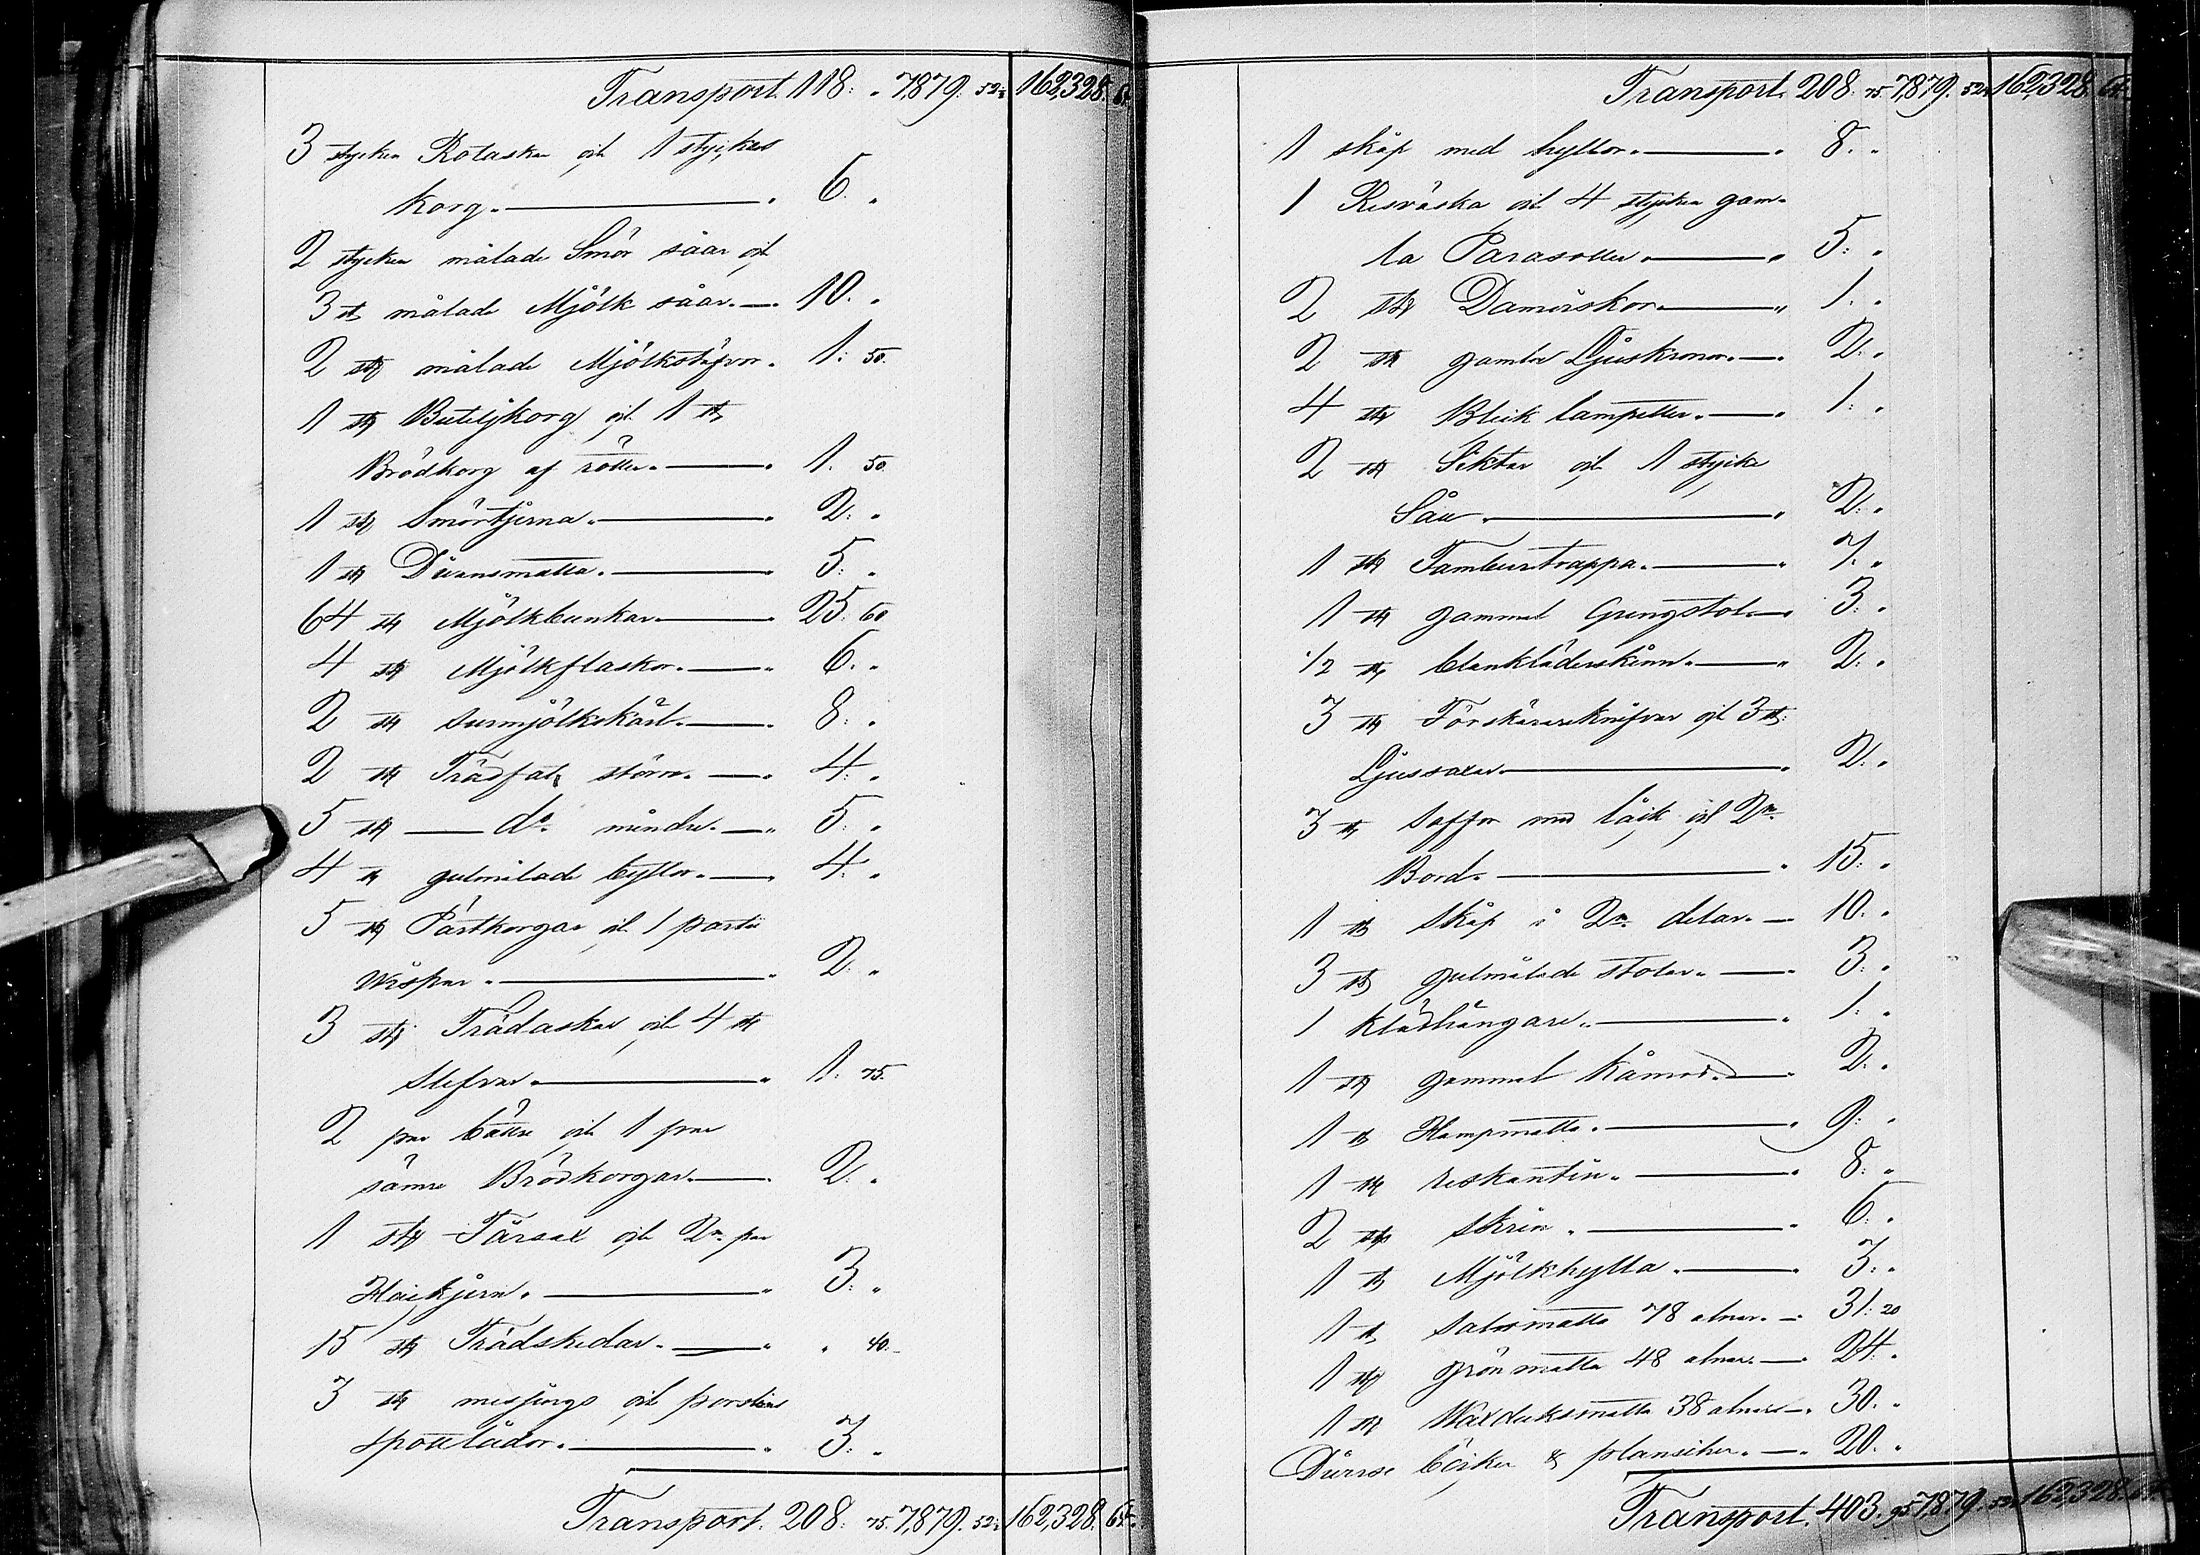 Transport. 118: „ 7,879. 52. 162,328. 64.
3 stycken Rotaskar och 1 styckes
korg. — „ 6. „
2 stycken målade Smör såar och
3 st målade Mjölk såar. — 10. „
2 st målade Mjölkstäfvor. 1: 50.
1 st Buteljkorg och 1 st
Brödkorg af rötter. — „ 1. 50.
1 st Smörtjerna. — „ 2: „
1 st Divansmatta. — „ 5: „
64 st Mjölkbunkar — „ 25: 60
4 st Mjölkflaskor. — „ 6. „
2 st surmjölkskärl. — „ 8: „
2 st Trädfat, större. — „ 4: „
5 st — do. mindre. — „ 5: „
4 st gulmålade byttor. — „ 4: „
5 st Pärtkorgar och 1 parti
wispar. — „ 2: „
3 st Trädaskar och 4 st
Slefvar. — „ 1: 75.
2 par bättre och 1 par
sämre Brödkorgar. — 2: „
1 st Fårsax och 2ne par
Häckjern. — „ 3: „
15 st Trädskedar. — „ „ 40.
3 st messings och porslins
spottlådor. — „ 3: „
Transport. 208: 75. 7,879. 52. 162,328. 64.
Transport. 208. 75 7,879. 52. 162,328. 64.
1 skåp med hyllor. — „ 8. „
1 Resväska och 4 stycken gam-
la Parasoller. — „ 5: „
2 st Damerskor — „ 1. „
2 st gamla Ljuskronor. — 2. „
4 st Bleck lampetter. — „ 1: „
2 st Siktar och 1 stycke
Såll. — „ 2: „
1 st Tamburtrappa. — „ 7. „
1 st gammal Gungstol — „ 3: „
1/2 st blankläderskinn. — „ 2: „
3 st Förskärareknifvar och 3 st
Ljussaxar — „ 2: „
3 st Soffor med låck och 2ne
Bord. — „ 15: „
1 st skåp i 2ne delar. — 10. „
3 st gulmålade stolar. — „ 3: „
1 klädhängare. — „ 1. „
1 st gammal kåmod. — 2: „
1 st Hampmatta. — „ 9: „
1 st reskantin. — „ 8: „
2 st skrin. — „ 6: „
1 st Mjölkhylla. — „ 3: „
1 st salsmatta 78 alnar. — 31: 20
1 st grön matta 48 alnar. — 24: „
1 st Waxduksmatta 38 alnar — 30. „
Diverse böcker & planscher. — „ 20. „
Transport. 403. 95 7,879. 52. 162,328. 64.